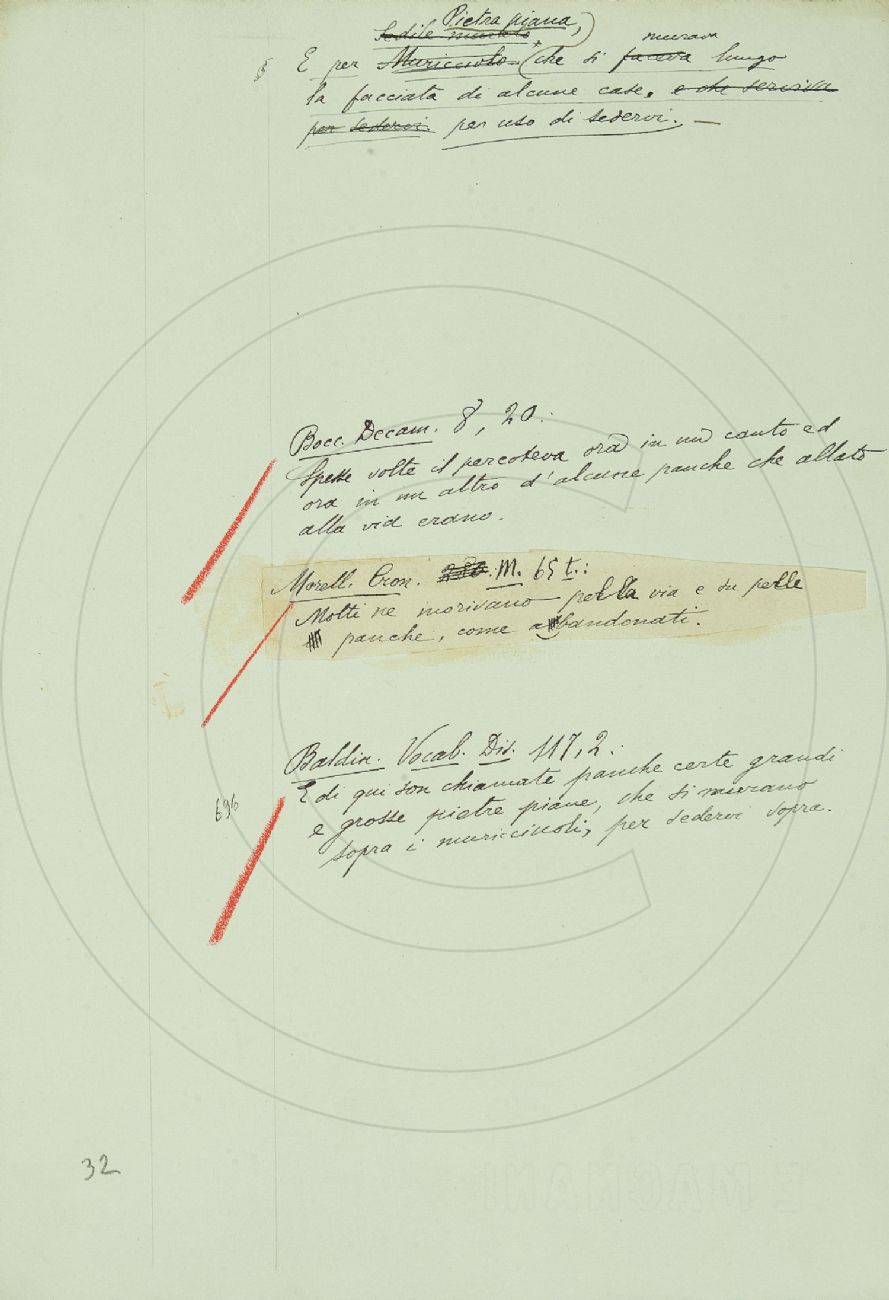 Pietra piana,
Sedile murato
§ E per Muricciolo che si faceva murava lungo
la facciata di alcune case. e che serviva
per sedervi. per uso di sedervi. —
Bocc. Decam. 8, 20:
Spesse volte il percoteva ora in un canto ed
ora in un altro d'alcune panche che allato
alla via erano.
Morell. Cron. M. 65 t.:
Molti ne morivano pella via e su pelle
panche, come abbandonati.
Baldin. Vocab. Dis. 117, 2:
E di qui son chiamate panche certe grandi
e grosse pietre piane, che si murano
sopra i muricciuoli, per sedervi sopra.
696
32
E MAGNANI